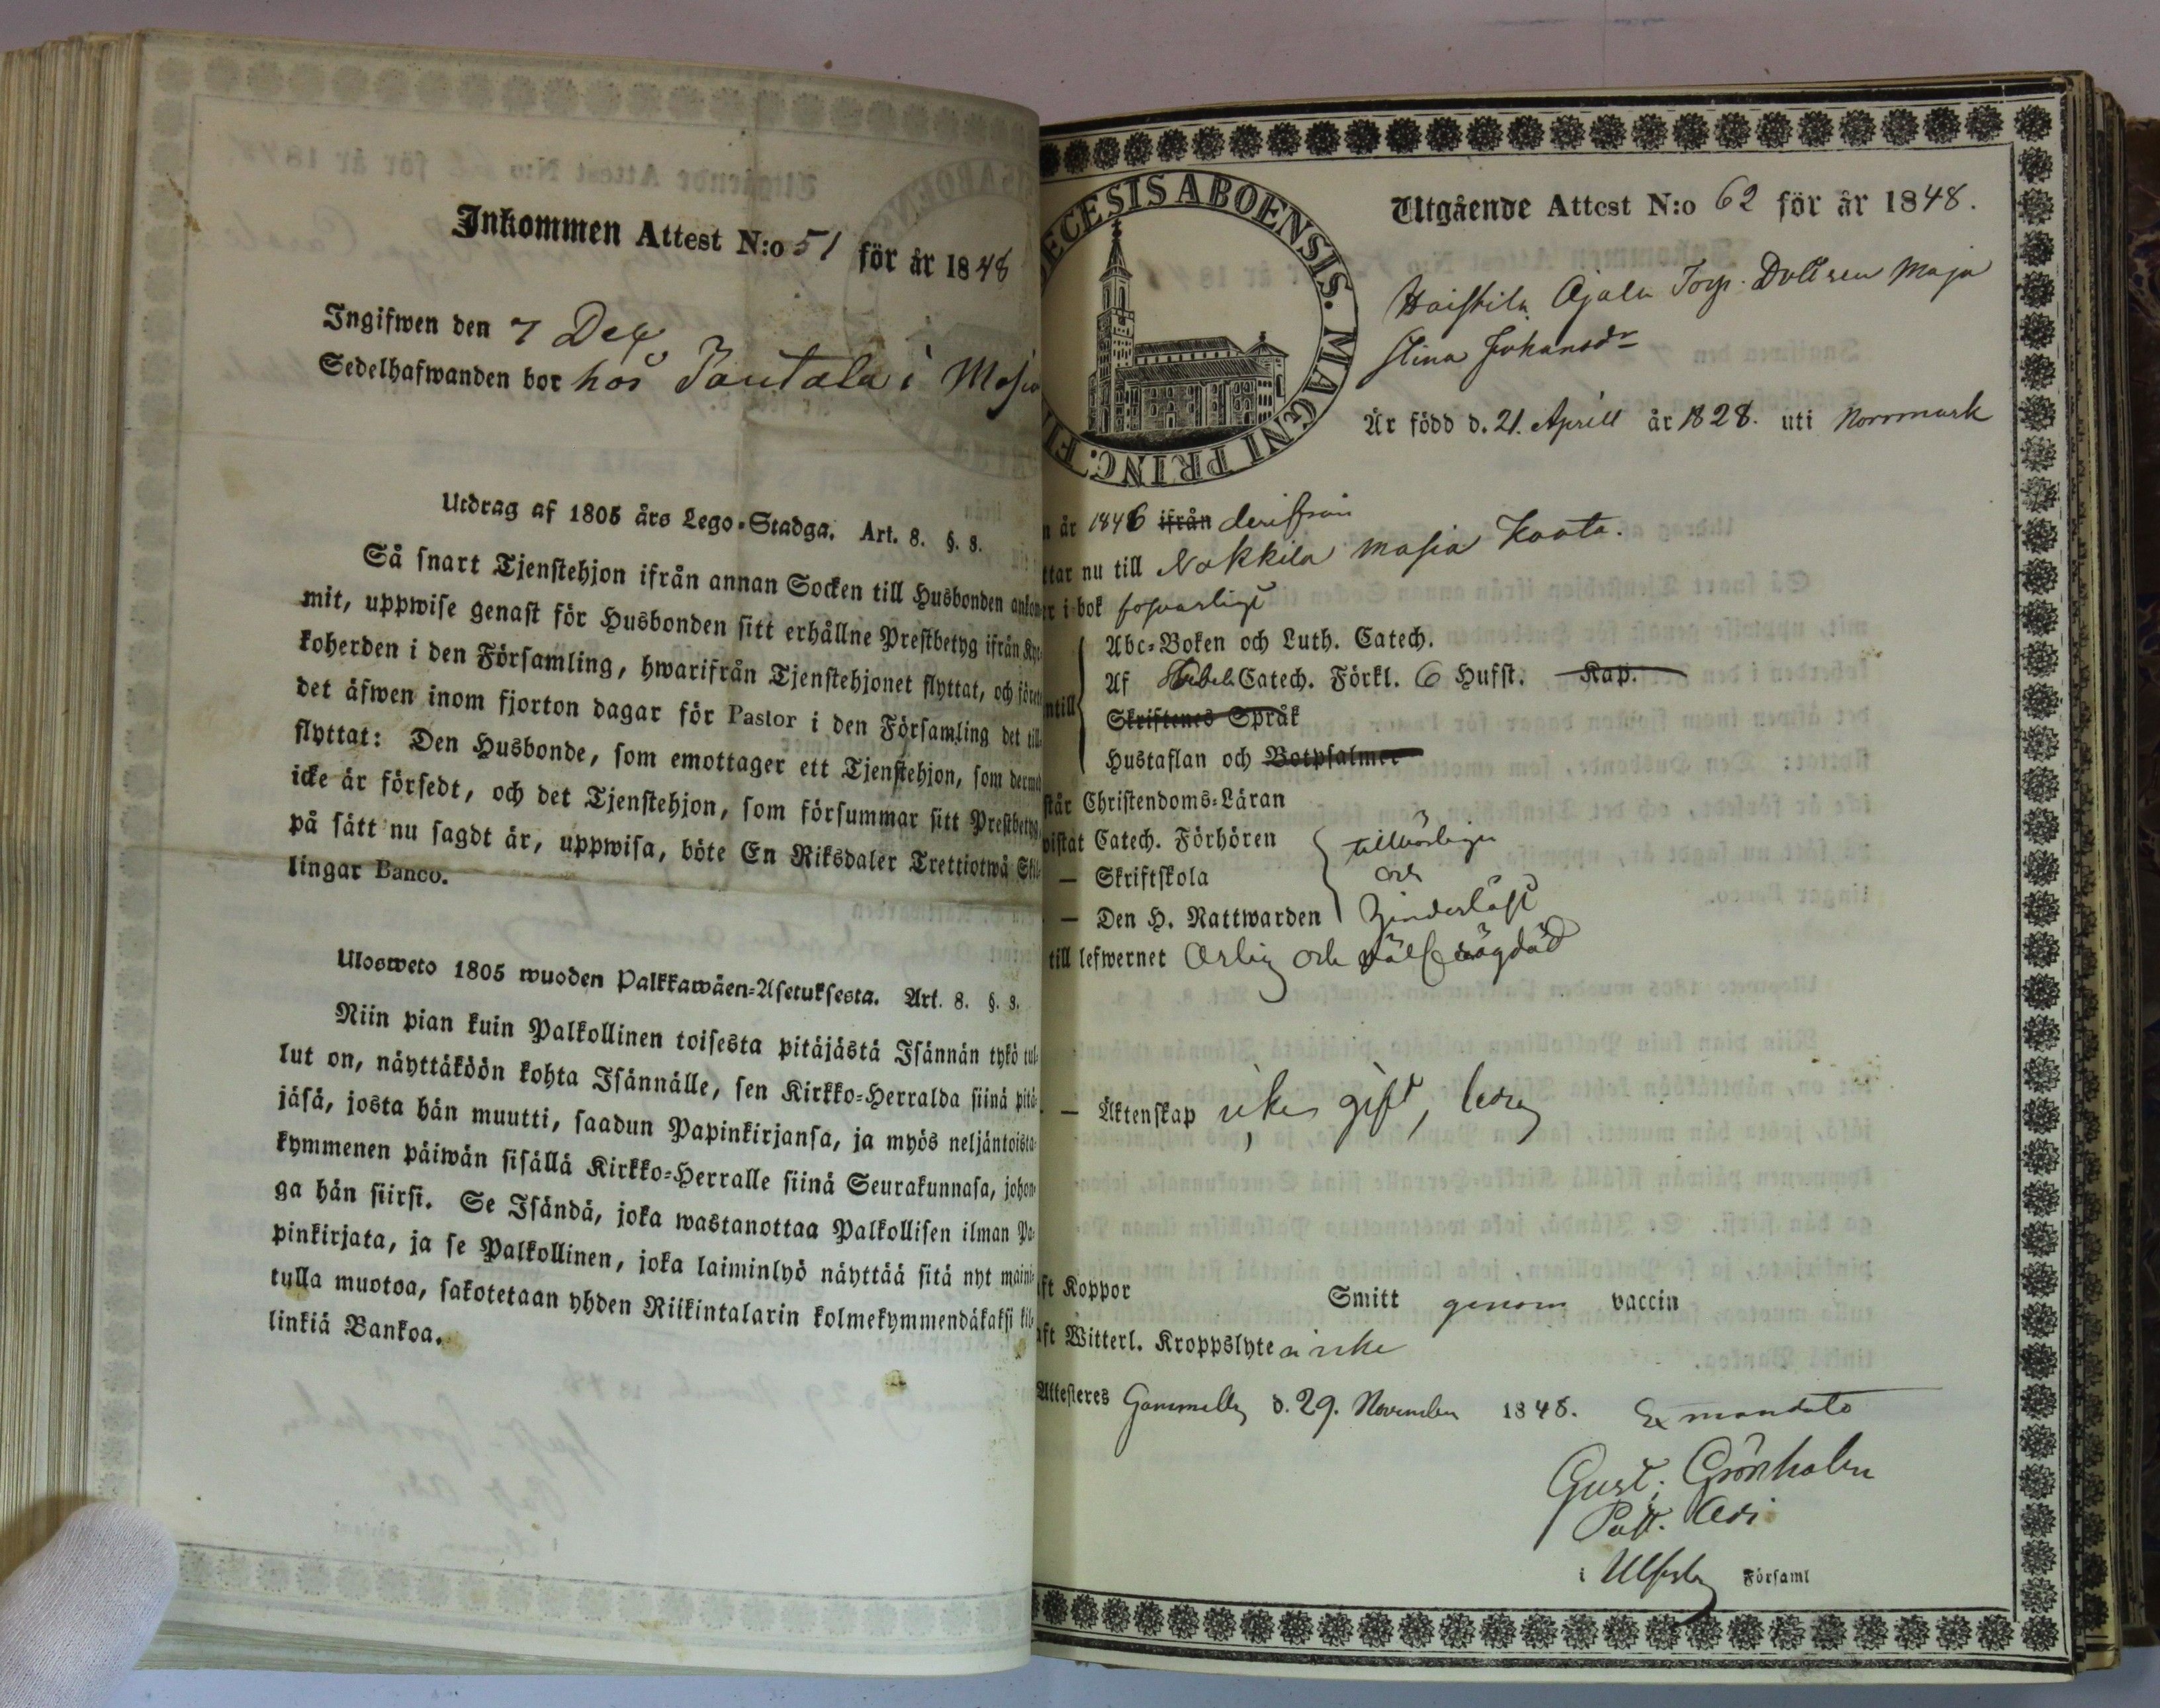 Inkommen Attest N:o 51 för år 1848
Ingifwen den 7 Dec
Sedelhafwanden bor hos Tautala i Masia
Utdrag af 1805 års Lego-Stadga. Art. 8. §. 8.
Så snart Tjenstehjon ifrån annan Socken till Husbonden ankom-
mit, uppwise genast för Husbonden sitt erhållne Prestbetyg ifrån Kyr-
koherden i den Församling, hwarifrån Tjenstehjonet flyttat, och förete
det äfwen inom fjorton dagar för Pastor i den Församling det till-
flyttat: Den Husbonde, som emottager ett Tjenstehjon, som dermed
icke är försedt, och det Tjenstehjon, som försummar sitt Prestbetyg,
på sätt nu sagdt är, uppwisa, böte En Riksdaler Trettiotwå Skil-
lingar Banco.
Ulosweto 1805 wuoden Palkkawäen-Asetuksesta. Art. 8. §. 8.
Niin pian kuin Palkollinen toisesta pitäjästä Isännän tykö tul-
lut on, näyttäköön kohta Isännälle, sen Kirkko-Herralda siinä pitä-
jäsä, josta hän muutti, saadun Papinkirjansa, ja myös neljäntoista-
kymmenen päiwän sisällä Kirkko-Herralle siinä Seurakunnasa, johon-
ga hän siirsi. Se Isändä, joka wastanottaa Palkollisen ilman Pa-
pinkirjata, ja se Palkollinen, joka laiminlyö näyttää sitä nyt maini-
tulla muotoa, sakotetaan yhden Riikintalarin kolmekymmendäkaksi kil-
linkiä Bankoa.
ECESIS ABOENSIS. MAGNI PRINC. FI
Utgående Attest N:o 62 för år 1848.
Haistila Ajala Torp. Dottren Maja
Stina Johansdr
Är född d. 21. Aprill år 1828. uti Norrmark
n år 1846 ifrån derifrån
ttar nu till Nakkila Masia Kaata.
er i bok försvarligt
ntill
Abc-Boken och Luth. Catech.
Af Catech. Förkl. 6 Hufst. Kap.
Skriftenes Språk
Hustaflan och Botpsalmer
står Christendoms-Läran
vistat Catech. Förhören
— Skriftskola
— Den H. Nattwarden
tillbörligen
och
till lefwernet Ärlig och
— Äktenskap icke gift, ledig
ft Koppor Smitt genom vaccin
ft Witterl. Kroppslyte icke
Attesteres Gammelby d. 29. November 1848. Ex mandato
Gust. Grönholm
Past. Adj.
i Ulfsby Församl